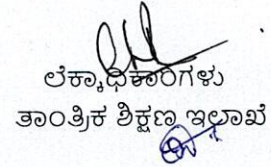 ಲೆಕ್ಕಾಧಿಕಾರಿಗಳು
ತಾಂತ್ರಿಕ ಶಿಕ್ಷಣ ಇಲಾಖೆ